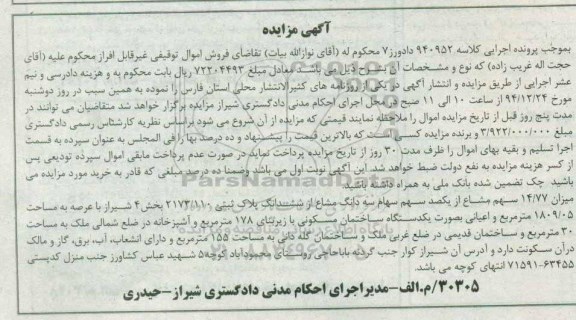 آگهی مزایده
بموجب پرونده اجرایی کلاسه ۹۴۰۹۵۲ دادورز۷ محکوم له (آقای نوازالله بیات) تقاضای فروش اموال توقیفی غیرقابل افراز محکوم علیه (آقای
حجت اله غریب زاده) که نوع و مشخصات آن بشرح ذیل می باشد معادل مبلغ ۷۲۲۰۴۴۹۳ ریال بابت محکوم به و هزینه دادرسی و نیم
عشر اجرایی از طریق مزایده و انتشار آگهی در یکی از روزنامه های کثیرالانتشار محلی استان فارس را نموده به همین سبب در روز دوشنبه
مورخ ۹۴/۱۲/۲۴ از ساعت ۱۰ الی ۱۱ صبح در محل اجرای احکام مدنی دادگستری شیراز مزایده برگزار خواهد شد متقاضیان می توانند در
مدت پنج روز قبل از تاریخ مزایده اموال را ملاحظه نمایند قیمتی که مزایده از آن شروع می شود براساس نظریه کارشناس رسمی دادگستری
مبلغ ۳/۹۲۲/۰۰۰/۰۰۰ و برنده مزایده کسی است که بالاترین قیمت را پیشنهاد و ده درصد بها را فی المجلس به عنوان سپرده به قسمت
اجرا تسلیم و بقیه بهای اموال را ظرف مدت ۳۰ روز از تاریخ مزایده پرداخت نماید در صورت عدم پرداخت مابقی اموال سپرده تودیعی پس
از کسر هزینه مزایده به نفع دولت ضبط خواهد شد. این آگهی نوبت اول می باشد وضمنا ده درصد مبلغی که قادر به خرید مورد مزایده می
باشید چک تضمین شده بانک ملی به همراه داشته باشید.
میزان ۱۴/۷۷ سهم مشاع از یکصد سهم سهام سه دانگ مشاع از ششدانگ پلاک ثبتی ۲۱۷۳/۱۱۰ بخش۴ شیراز با عرصه به مساحت
۱۸۰۹/۰۵ مترمربع و اعیانی بصورت یکدستگاه ساختمان مسکونی با زیربنای ۱۷۸ مترمربع و آشپزخانه در ضلع شمالی ملک به مساحت
۳۰ مترمربع و ساختمان قدیمی در ضلع غربی ملک و ساختمان گله دانی به مساحت ۱۵۵ مترمربع و دارای انشعاب، آب، برق، گاز و مالک
درآن سکونت دارد و آدرس آن شیراز کوار جنب گردنه باباحاجی روستای محمودآباد کوچه۵ شهید عباس کشاورز جنب منزل کدپستی
۷۱۵۹۱-۶۳۴۵۵ انتهای کوچه می باشد.
۳۰۳۰۵/م.الف-مدیراجرای احکام مدنی دادگستری شیراز-حیدری
ParsNamadData